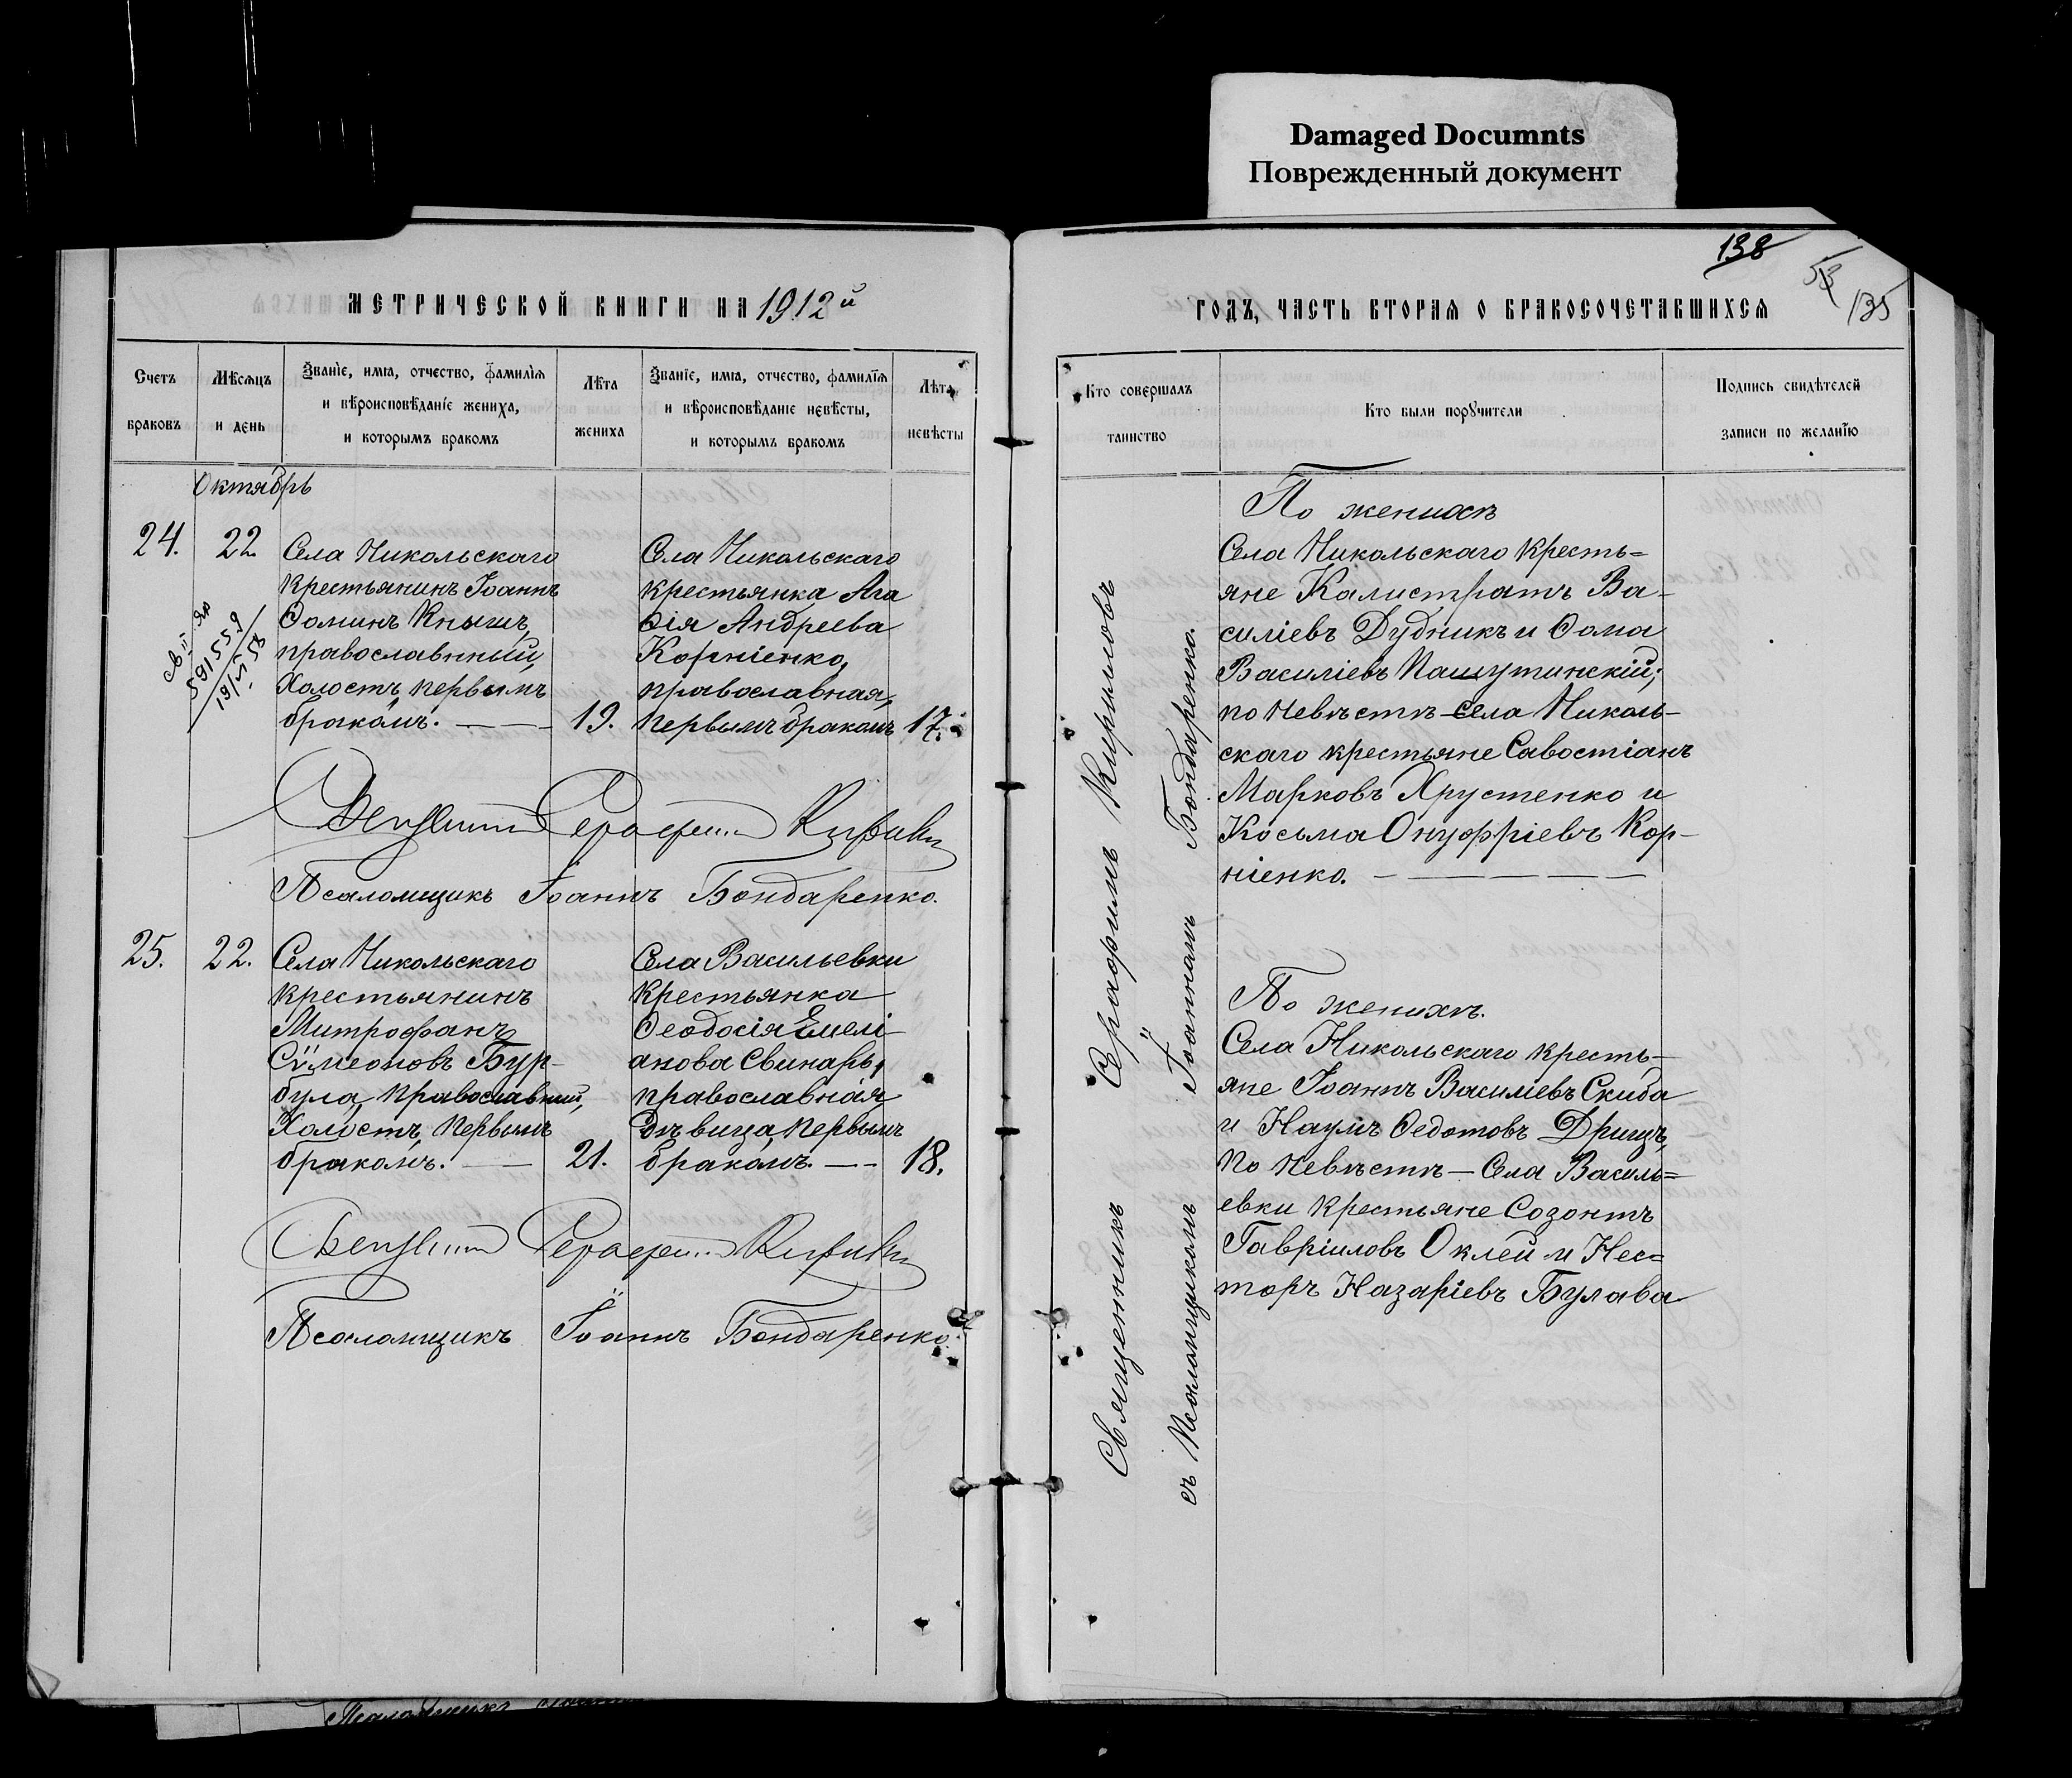 Damaged Documnts
Поврежденный документ
МЕТРИЧЕСКОЙ КНИГИ НА 1912й
Счетъ браковъ
Мѣсяцъ и день
Званіе, имя, отчество, фамилія
и вѣроисповѣданіе жениха,
и которымъ бракомъ
Лѣта жениха
Званіе, имя, отчество, фамилія
и вѣроисповѣданіе невѣсты,
и которымъ бракомъ
Лѣта невѣсты
Октябрь
24. 22.
Села Никольскаго
крестьянинъ Іоаннъ
Ѳоминъ Кнышъ,
православный,
холостъ, первымъ
бракомъ. — — 19.
Села Никольскаго
крестьянка Ага
ѳія Андреева
Корніенко,
православная,
первымъ бракомъ 17.
Священникъ Серафимъ Кириловъ
Псаломщикъ Іоаннъ Бондаренко.
25. 22.
Села Никольскаго
крестьянинъ
Митрофанъ
Сѵмеоновъ Бур-
була, православный,
холостъ, первымъ
бракомъ. — 21.
Села Васильевки
крестьянка
Ѳеодосія Емелі-
анова Свинарь,
православная,
дѣвица, первымъ
бракомъ. — - 18.
Священникъ Серафимъ Кириловъ
Псаломщикъ Іоаннъ Бондаренко.
138
53
135
ГОДЪ, ЧАСТЬ ВТОРАЯ О БРАКОСОЧЕТАВШИХСЯ
Кто совершалъ таинство
Кто были поручители
Подпись свидѣтелей
записи по желанію
Священникъ Серафимъ Кириловъ
съ Псаломщикомъ Іоанномъ Бондаренко.
По женихѣ
Села Никольскаго кресть=
яне Калистратъ Ва-
силіевъ Дудникъ и Ѳома
Василіевъ Пашутинскій;
по невѣстѣ — села Николь-
скаго крестьяне Савостіанъ
Марковъ Хрустенко и
Косьма Онуфріевъ Кор-
ніенко. — — — — —
По женихѣ.
Села Никольскаго кресть-
яне Іоаннъ Василіевъ Скиба
и Наумъ Ѳедотовъ Дрищъ,
по невѣстѣ — Села Василь=
евки крестьяне Созонтъ
Гавріиловъ Оклей и Нес=
торъ Назаріевъ Булава